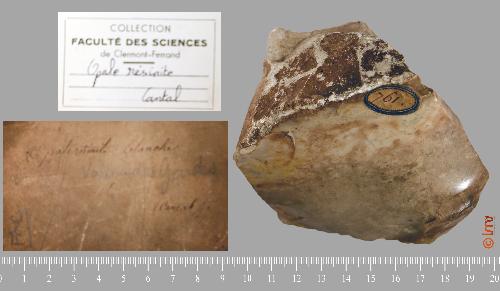 COLLECTION
FACULTÉ DES SCIENCES
de Clermont-Ferrand
Opale résinite
Cantal
.61.
blanche
Cantal
0 1 2 3 4 5 6 7 8 9 10 11 12 13 14 15 16 17 18 19 20